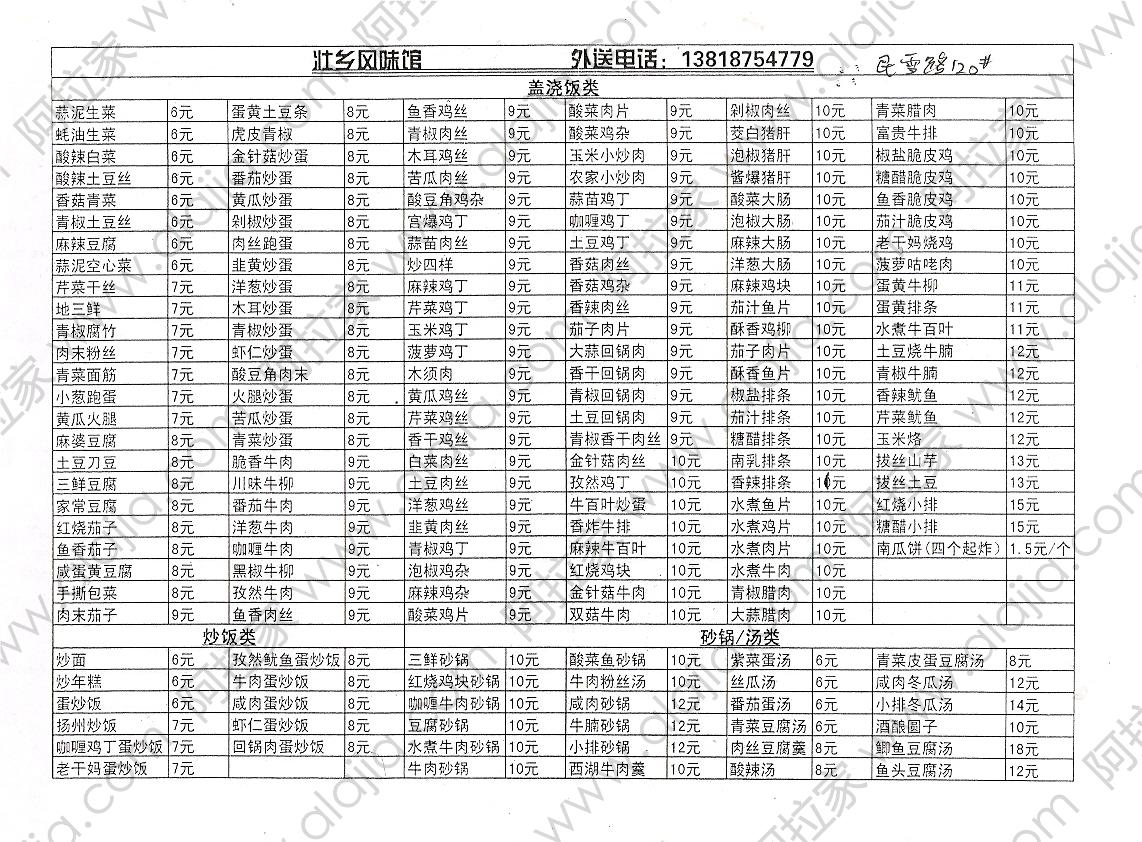 壮乡风味馆 外送电话：13818754779 民雪路120#
盖浇饭类
蒜泥生菜 6元 蛋黄土豆条 8元 鱼香鸡丝 9元 酸菜肉片 9元 剁椒肉丝 10元 青菜腊肉 10元
蚝油生菜 6元 虎皮青椒 8元 青椒肉丝 9元 酸菜鸡杂 9元 茭白猪肝 10元 富贵牛排 10元
酸辣白菜 6元 金针菇炒蛋 8元 木耳鸡丝 9元 玉米小炒肉 9元 泡椒猪肝 10元 椒盐脆皮鸡 10元
酸辣土豆丝 6元 番茄炒蛋 8元 苦瓜肉丝 9元 农家小炒肉 9元 酱爆猪肝 10元 糖醋脆皮鸡 10元
香菇青菜 6元 黄瓜炒蛋 8元 酸豆角鸡杂 9元 蒜苗鸡丁 9元 酸菜大肠 10元 鱼香脆皮鸡 10元
青椒土豆丝 6元 剁椒炒蛋 8元 宫爆鸡丁 9元 咖喱鸡丁 9元 泡椒大肠 10元 茄汁脆皮鸡 10元
麻辣豆腐 6元 肉丝跑蛋 8元 蒜苗肉丝 9元 土豆鸡丁 9元 麻辣大肠 10元 老干妈烧鸡 10元
蒜泥空心菜 6元 韭黄炒蛋 8元 炒四样 9元 香菇肉丝 9元 洋葱大肠 10元 菠萝咕咾肉 10元
芹菜干丝 7元 洋葱炒蛋 8元 麻辣鸡丁 9元 香菇鸡杂 9元 麻辣鸡块 10元 蛋黄牛柳 11元
地三鲜 7元 木耳炒蛋 8元 芹菜鸡丁 9元 香辣肉丝 9元 茄汁鱼片 10元 蛋黄排条 11元
青椒腐竹 7元 青椒炒蛋 8元 玉米鸡丁 9元 茄子肉片 9元 酥香鸡柳 10元 水煮牛百叶 11元
肉末粉丝 7元 虾仁炒蛋 8元 菠萝鸡丁 9元 大蒜回锅肉 9元 茄子肉片 10元 土豆烧牛腩 12元
青菜面筋 7元 酸豆角肉末 8元 木须肉 9元 香干回锅肉 9元 酥香鱼片 10元 青椒牛腩 12元
小葱跑蛋 7元 火腿炒蛋 8元 黄瓜鸡丝 9元 青椒回锅肉 9元 椒盐排条 10元 香辣鱿鱼 12元
黄瓜火腿 7元 苦瓜炒蛋 8元 芹菜鸡丝 9元 土豆回锅肉 9元 茄汁排条 10元 芹菜鱿鱼 12元
麻婆豆腐 8元 青菜炒蛋 8元 香干鸡丝 9元 青椒香干肉丝 9元 糖醋排条 10元 玉米烙 12元
土豆刀豆 8元 脆香牛肉 9元 白菜肉丝 9元 金针菇肉丝 10元 南乳排条 10元 拔丝山芋 13元
三鲜豆腐 8元 川味牛柳 9元 土豆肉丝 9元 孜然鸡丁 10元 香辣排条 10元 拔丝土豆 13元
家常豆腐 8元 番茄牛肉 9元 洋葱鸡丝 9元 牛百叶炒蛋 10元 水煮鱼片 10元 红烧小排 15元
红烧茄子 8元 洋葱牛肉 9元 韭黄肉丝 9元 香炸牛排 10元 水煮鸡片 10元 糖醋小排 15元
鱼香茄子 8元 咖喱牛肉 9元 青椒鸡丁 9元 麻辣牛百叶 10元 水煮肉片 10元 南瓜饼(四个起炸) 1.5元/个
咸蛋黄豆腐 8元 黑椒牛柳 9元 泡椒鸡杂 9元 红烧鸡块 10元 水煮牛肉 10元
手撕包菜 8元 孜然牛肉 9元 麻辣鸡杂 9元 金针菇牛肉 10元 青椒腊肉 10元
肉末茄子 9元 鱼香肉丝 9元 酸菜鸡片 9元 双菇牛肉 10元 大蒜腊肉 10元
炒饭类 砂锅/汤类
炒面 6元 孜然鱿鱼蛋炒饭 8元 三鲜砂锅 10元 酸菜鱼砂锅 10元 紫菜蛋汤 6元 青菜皮蛋豆腐汤 8元
炒年糕 6元 牛肉蛋炒饭 8元 红烧鸡块砂锅 10元 牛肉粉丝汤 10元 丝瓜汤 6元 咸肉冬瓜汤 12元
蛋炒饭 6元 咸肉蛋炒饭 8元 咖喱牛肉砂锅 10元 咸肉砂锅 12元 番茄蛋汤 6元 小排冬瓜汤 14元
扬州炒饭 7元 虾仁蛋炒饭 8元 豆腐砂锅 10元 牛腩砂锅 12元 青菜豆腐汤 6元 酒酿圆子 10元
咖喱鸡丁蛋炒饭 7元 回锅肉蛋炒饭 8元 水煮牛肉砂锅 10元 小排砂锅 12元 肉丝豆腐羹 8元 鲫鱼豆腐汤 18元
老干妈蛋炒饭 7元 牛肉砂锅 10元 西湖牛肉羹 10元 酸辣汤 8元 鱼头豆腐汤 12元
阿拉家 www.alajia.com